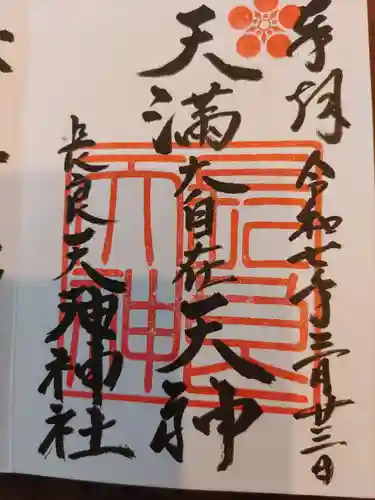 奉拝
令和七年三月廿三日
天満大自在天神
長良天神神社